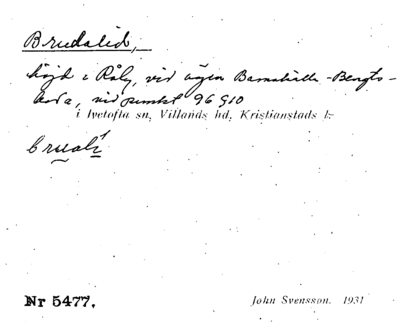 Brudalid,
höjd i Råby, vid vägen Barnahälle-Bengts-
boda, vid punkt 96 910
i Ivetofta sn, Villands hd, Kristianstads l.
Nr 5477.
John Svensson. 1931